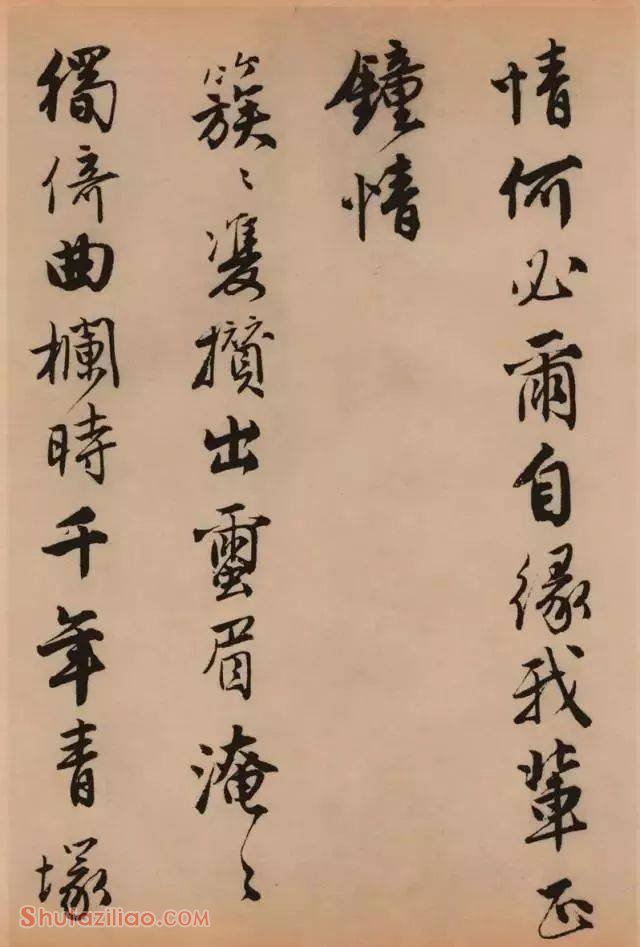 情何必爾自緣我輩正
鐘情
簇〻雙攢出繭眉淹〻
獨倚曲欄時千年青塚
Shufaziliao.com